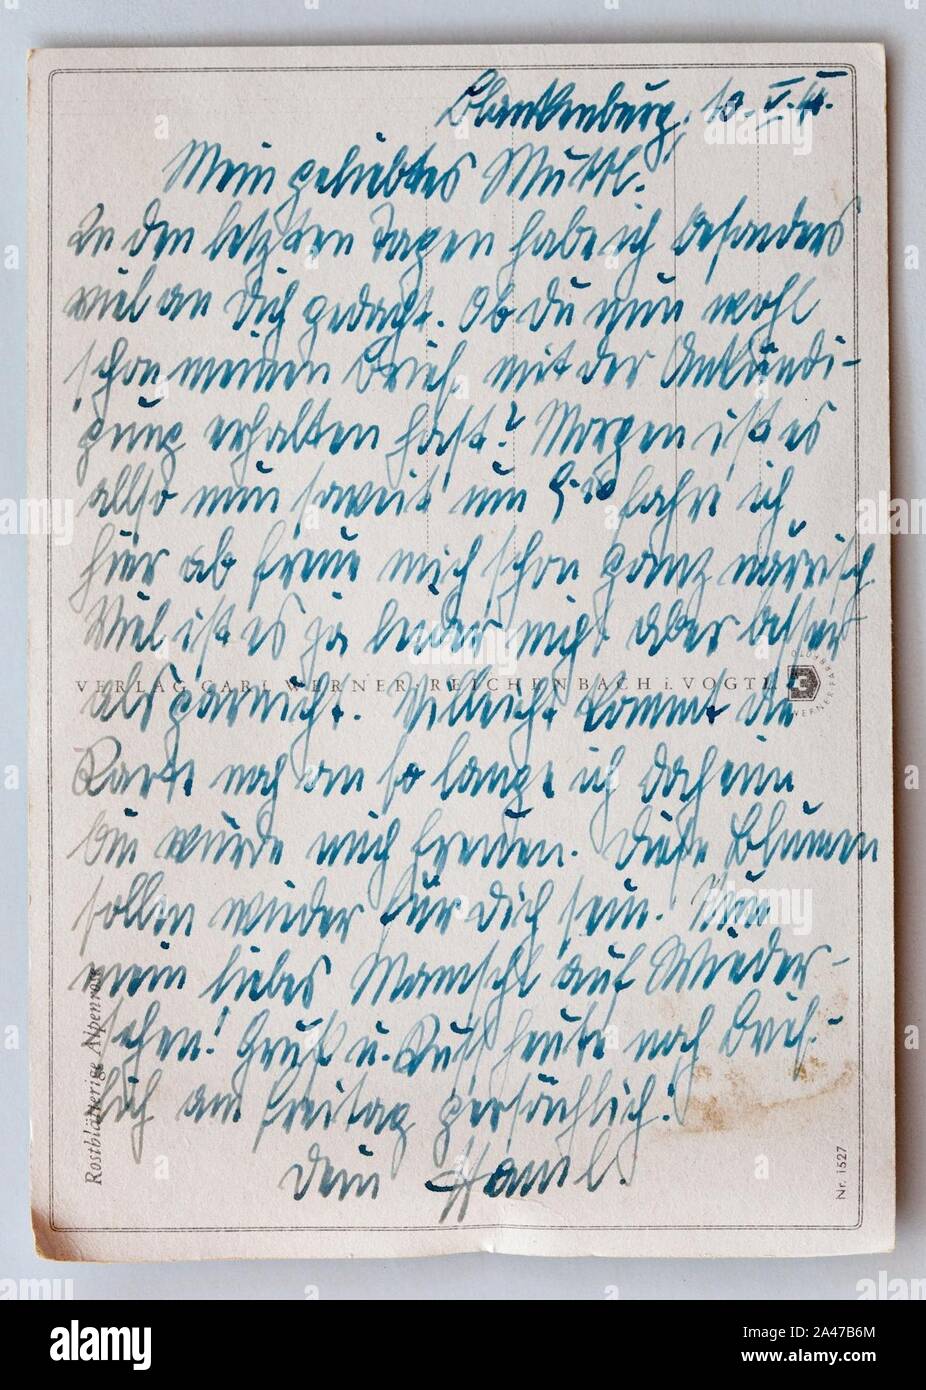 Blankenburg, 10. V.
Mein geliebtes Muttl.
In den letzten Tagen habe ich besonders
viel an Dich gedacht. Ob Du nun wohl
schon meinen Brief mit der Ankündi-
gung erhalten hast? Morgen ist es
allso nun soweit um fahre ich
hier ab freue mich schon ganz närrisch.
Viel ist es ja leider nicht aber besser
VERLAG CARL WERNER, REICHENBACH i. VOGTL.
als garnicht. Vielleicht kommt die
Karte noch an so lange ich doch ein
bin würde mich freuen. Diese Blumen
sollen wieder für Dich sein. Nun
mein liebes auf Wieder-
sehen! Gruß u. Kuß heute noch brief-
lich am Freitag persönlich!
Dein
Rostblätterige Alpenrose
Nr. 1527
alamy
2A47B6M
www.alamy.com